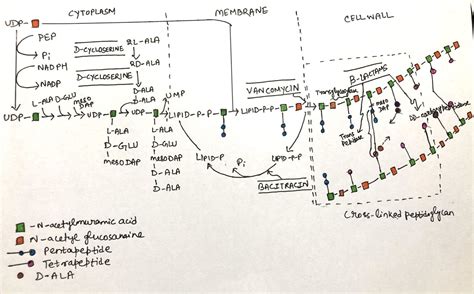 CYTOPLASM
MEMBRANE
CELL WALL
UDP-
PEP
Pi
NADPH
NADP
D-CYCLOSERINE
2L-ALA
2D-ALA
D-CYCLOSERINE
D-ALA
D-ALA
L-ALA D-GLU meso DAP
UDP-
UDP-
UDP-
L-ALA
D-GLU
mesoDAP
L-ALA
D-GLU
mesoDAP
D-ALA
D-ALA
UMP
LIPID-P-P-
VANCOMYCIN
LIPID-P-P-
LIPID-P
Pi
LIPID-P-P
BACITRACIN
Transglycosylase
β-LACTAMS
Trans peptidase
meso DAP
DD-carboxypeptidase
Cross-linked peptidoglycan
-N-acetylmuramic acid
N-acetyl glucosamine
Pentapeptide
Tetrapeptide
D-ALA